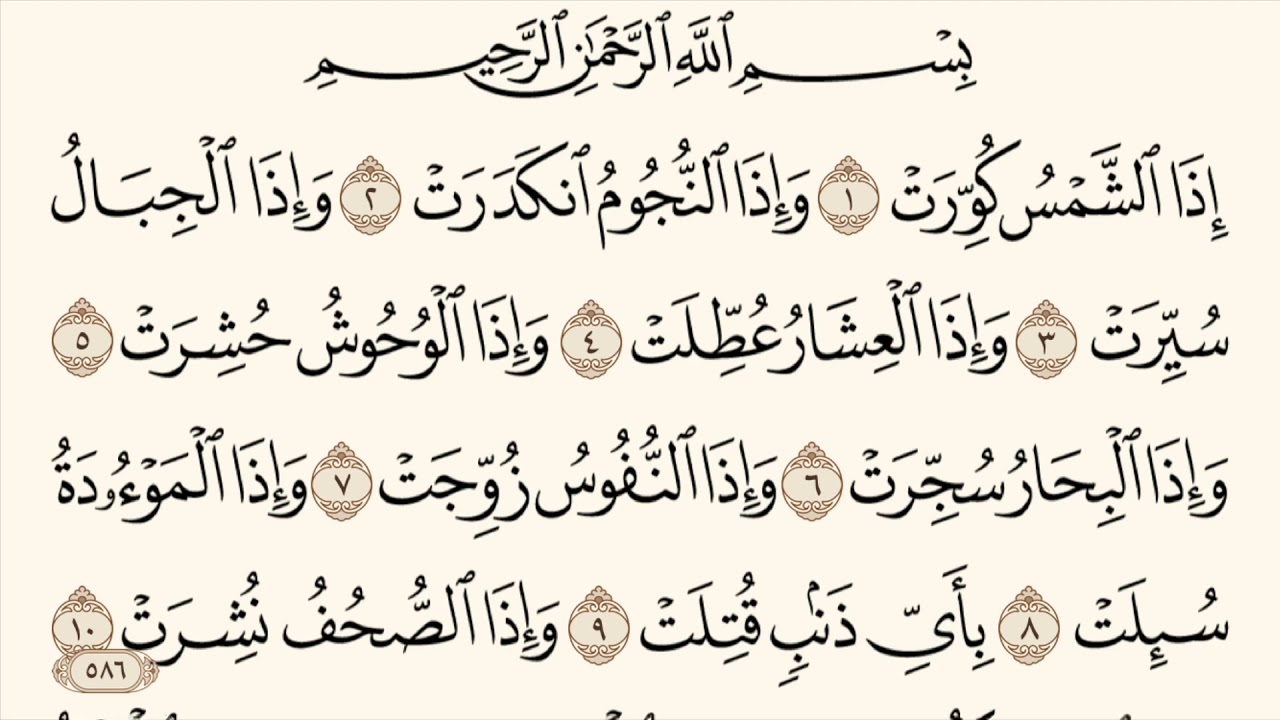 بِسْمِ ٱللَّهِ ٱلرَّحْمَٰنِ ٱلرَّحِيمِ
إِذَا ٱلشَّمْسُ كُوِّرَتْ ١ وَإِذَا ٱلنُّجُومُ ٱنكَدَرَتْ ٢ وَإِذَا ٱلْجِبَالُ
سُيِّرَتْ ٣ وَإِذَا ٱلْعِشَارُ عُطِّلَتْ ٤ وَإِذَا ٱلْوُحُوشُ حُشِرَتْ ٥
وَإِذَا ٱلْبِحَارُ سُجِّرَتْ ٦ وَإِذَا ٱلنُّفُوسُ زُوِّجَتْ ٧ وَإِذَا ٱلْمَوْءُۥدَةُ
سُئِلَتْ ٨ بِأَىِّ ذَنۢبٍ قُتِلَتْ ٩ وَإِذَا ٱلصُّحُفُ نُشِرَتْ ١٠
٥٨٦